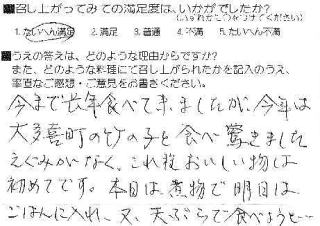 ■召し上がってみての満足度は、いかがでしたか?
(いずれかに○をつけてください)
1. たいへん満足 2. 満足 3. 普通 4. 不満 5. たいへん不満
■うえの答えは、どのような理由からですか?
また、どのような料理にて召し上がられたかを記入のうえ、
率直なご感想・ご意見をお書きください。
今まで長年食べてきましたが、今年は
大多喜町の竹の子を食べ驚きました
えぐみがなく、これ程おいしい物は
初めてです。本日は煮物で明日は
ごはんに入れ、又、天ぷらで食べようと…